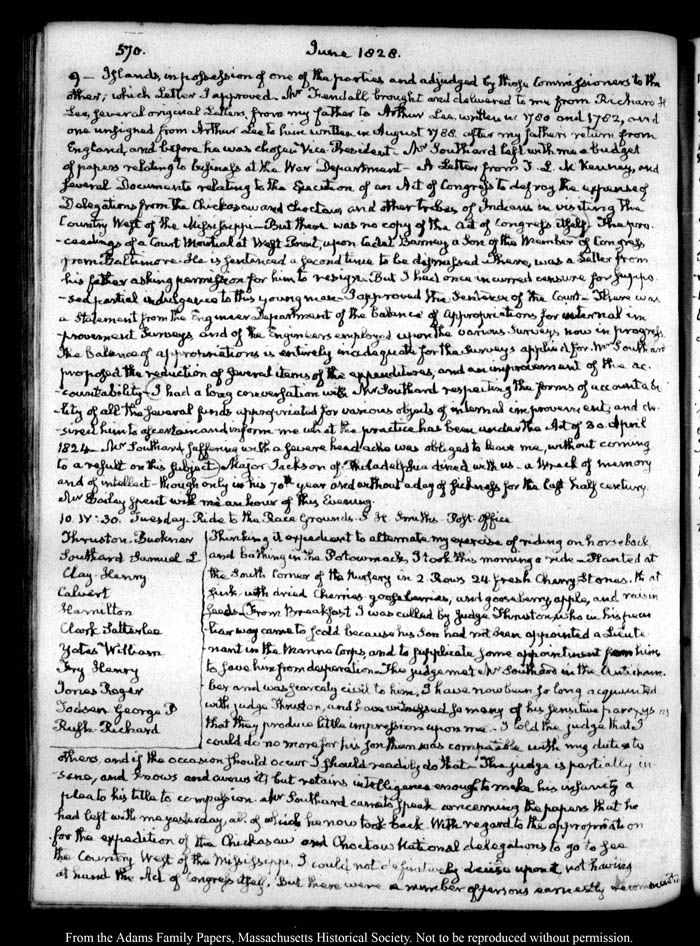 570.
June 1828.
9 – Islands, in possession of one of the parties and adjudged by those Commissioners to the
other; which Letter I approved. Mr Trendall brought and delivered to me from Richard H
Lee, several original Letters, from my father to Arthur Lee, written in 1780 and 1782, and
one unsigned from Arthur Lee to him written in August 1788. after my father's return from
England, and before he was chosen Vice-President – Mr Southard left with me a budget
of papers relating to business at the War Department – A Letter from T. L. McKenney, and
several Documents relating to the Execution of an Act of Congress to defray the expense of
Delegations from the Chickasaw and Choctaw, and other tribes of Indians in visiting the
Country West of the Mississippi – But there was no copy of the Act of Congress itself. The pro-
-ceedings of a Court Martial at West Point, upon Cadet Barney a Son of the Member of Congress
from Baltimore. He is sentenced a second time to be dismissed. There was a Letter from
his father asking permission for him to resign. But I had once incurred censure for suppo-
-sed partial indulgence to this young man. I approved the Sentence of the Court – There was
a Statement from the Engineer Department of the Balance of appropriations for internal im-
-provement Surveys, and of the Engineers employed upon the various Surveys now in progress
The Balance of appropriations is entirely inadequate for the Surveys applied for. Mr Southard
proposed the reduction of several items of the expenditures, and an improvement of the ac-
-countability – I had a long conversation with Mr Southard respecting the forms of accountabi-
-lity of all the several funds appropriated for various objects of internal improvement; and de-
-sired him to ascertain and inform me what the practice has been under the Act of 30. April
1824. Mr Southard suffering with a severe head ache was obliged to leave me, without coming
to a result on this subject. Major Jackson of Philadelphia dined with us. a wreck of memory
and of intellect – though only in his 70th year and without a day of sickness for the last half century.
Mr Bailey spent with me an hour of this Evening.
10. IV: 30. Tuesday. Ride to the Race Grounds. S. H. Smith's. Post-Office
Thruston. Buckner
Southard Samuel L.
Clay. Henry
Calvert
Hamilton
Clark Satterlee
Yates William
Fry Henry
Jones Roger
Todsen George P
Rush. Richard
Thinking it expedient to alternate my exercise of riding on horseback,
and bathing in the Potowmack, I took this morning a ride – Planted at
the South Corner of the Nursery in 2 Rows 24 fresh Cherry Stones. th at
with dried Cherries, gooseberries, and gooseberry, apple, and raisin
seeds. From Breakfast I was called by Judge Thruston, who in his pecu-
liar way came to scold because his Son had not been appointed a Lieute-
nant in the Marine Corps, and to supplicate some appointment for him
to save him from desperation. The judge met Mr Southard in the Antecham-
ber and was scarcely civil to him. I have now been so long acquainted
with judge Thruston, and have witnessed so many of his sensitive paroxysms
that they produce little impression upon me. I told the judge that I
could do no more for his son than was compatible with my duties to
others, and if the occasion should occur I should readily do that. The judge is partially in-
-sane, and knows and avows it; but retains intelligence enough to make his insanity a
plea to his title to compassion. Mr Southard came to speak concerning the papers that he
had left with me yesterday, all of which he now took back. With regard to the appropriation
for the expedition of the Chickasaw and Choctaw National delegations to go to see
the Country West of the Mississippi, I could not definitively decide upon it, not having
at hand the Act of Congress itself. But there were a number of persons earnestly recommended
From the Adams Family Papers, Massachusetts Historical Society. Not to be reproduced without permission.